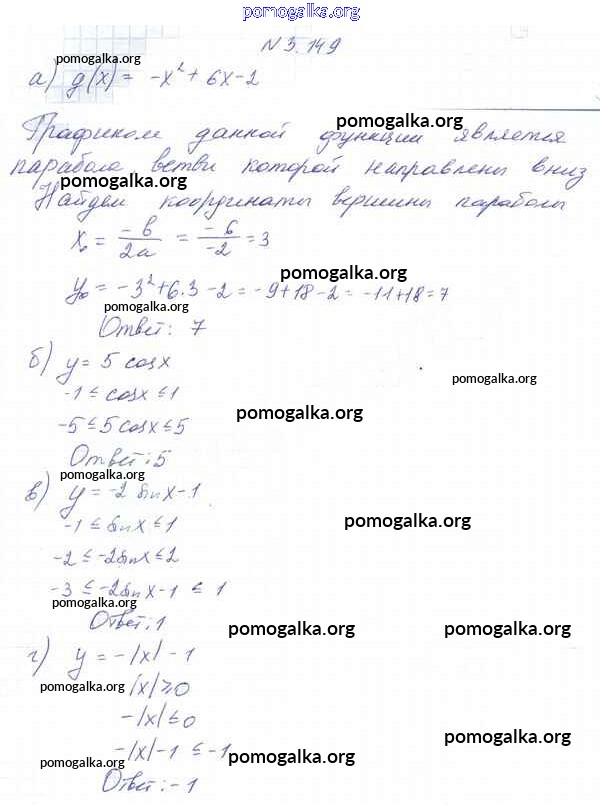 pomogalka.org
N 3.149
pomogalka.org
а) g(x) = -x² + 6x - 2
pomogalka.org
Графиком данной функции является
парабола, ветви которой направлены вниз
pomogalka.org
Найдем координаты вершины параболы
x₀ = -b/2a = -6/-2 = 3
pomogalka.org
y₀ = -3² + 6·3 - 2 = -9 + 18 - 2 = -11 + 18 = 7
pomogalka.org
Ответ: 7
б) y = 5 cos x
pomogalka.org
-1 ≤ cos x ≤ 1
pomogalka.org
-5 ≤ 5 cos x ≤ 5
Ответ: 5
pomogalka.org
в) y = -2 sin x - 1
-1 ≤ sin x ≤ 1
pomogalka.org
-2 ≤ -2 sin x ≤ 2
-3 ≤ -2 sin x - 1 ≤ 1
pomogalka.org
Ответ: 1
pomogalka.org pomogalka.org
г) y = -|x| - 1
pomogalka.org
|x| ≥ 0
-|x| ≤ 0
pomogalka.org
-|x| - 1 ≤ -1
pomogalka.org pomogalka.org
Ответ: -1